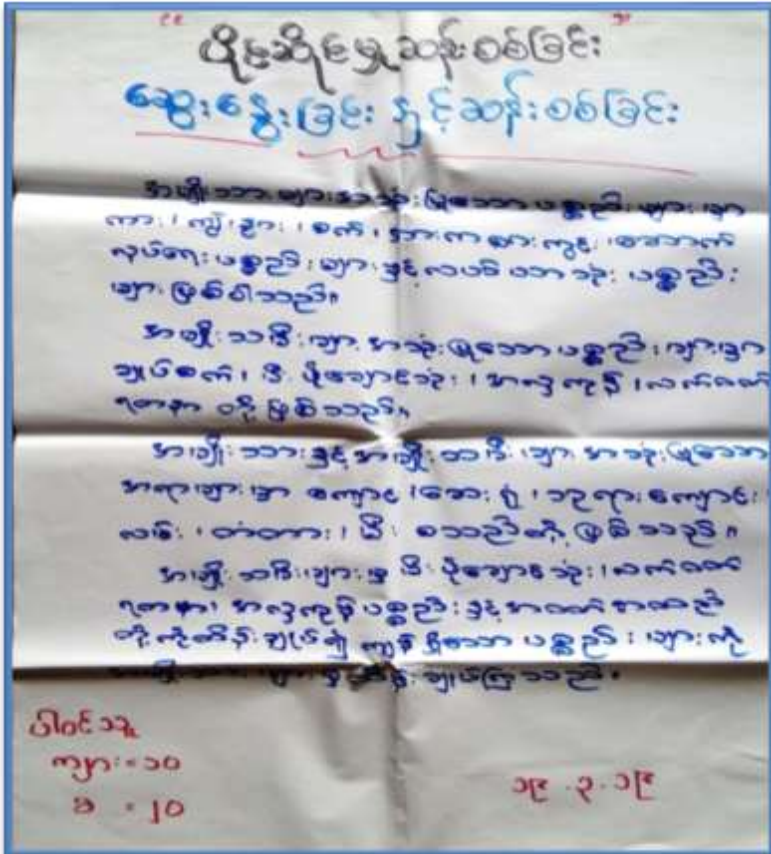 ပိုင်ဆိုင်မှုဆန်းစစ်ခြင်း
ဆွေးနွေးခြင်း နှင့်ဆန်းစစ်ခြင်း
အမျိုးသားများအသုံးပြုသော ပစ္စည်းများမှာ
ကား၊ ကျွဲ၊ နွား၊ စက်၊ အားကစားကွင်း၊ ဆောက်
လုပ်ရေးပစ္စည်းများနှင့် လယ်ယာသုံးပစ္စည်း
များဖြစ်ပါသည်။
အမျိုးသမီးများ အသုံးပြုသော ပစ္စည်းများမှာ
ချုပ်စက်၊ မီးဖိုချောင်သုံး၊ အလှကုန်၊ လက်ဝတ်
ရတနာ တို့ဖြစ်သည်။
အမျိုးသားနှင့်အမျိုးသမီးများ အသုံးပြုသော
အရာများမှာ ကျောင်း၊ ဆေးရုံ၊ ဘုရားကျောင်း၊
လမ်း၊ တံတား၊ မီး စသည်တို့ဖြစ်သည်။
အမျိုးသမီးများမှ မီးဖိုချောင်သုံး၊ လက်ဝတ်
ရတနာ၊ အလှကုန်ပစ္စည်းနှင့်အဝတ်အထည်
တို့ကိုထိန်းချုပ်၍ ကျန်ရှိသော ပစ္စည်းများကို
ထိန်းချုပ်ကြသည်။
ပါဝင်သူ
ကျား = ၁၀
မ = ၂၀
၁၉.၃.၁၉